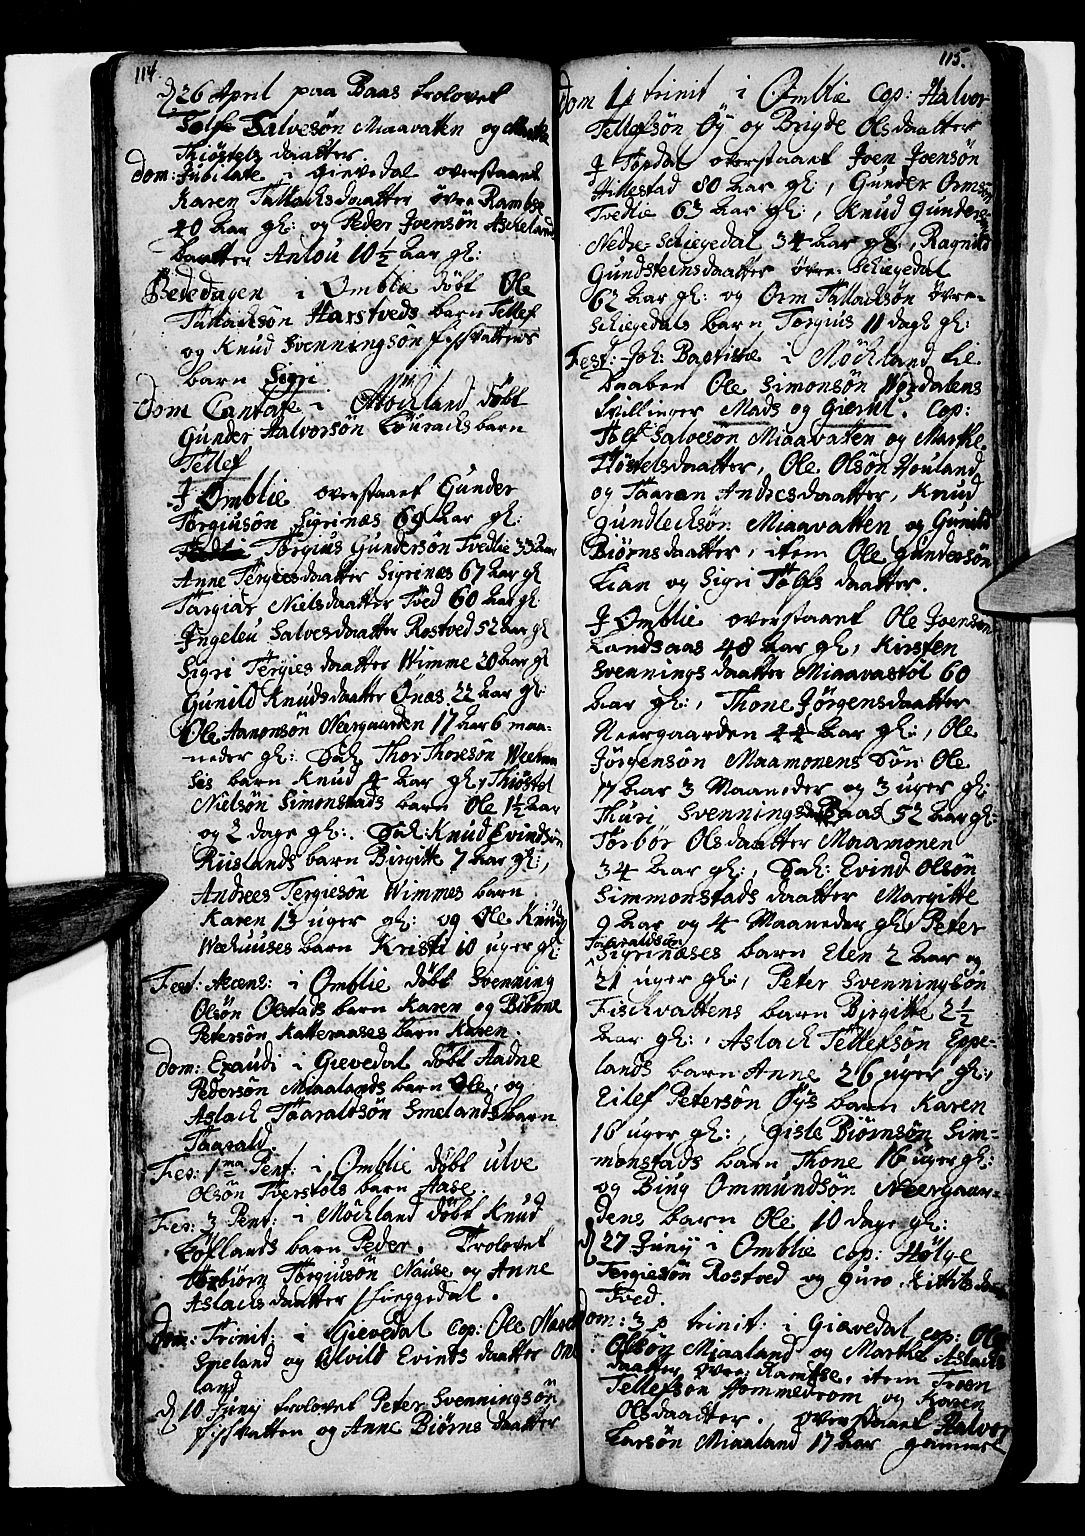 114.
d 26 April paa Baas trolovet
Tolf Salvesön Miaavatten og Marthe
Thiöstels daatter.
Dom: Jubilate i Gievedal overstaaet
Karen Tallachsdaatter övre Ramse
40 aar gl: og Peder Joensön Askeland
daatter Anlou 10½ aar gl:
Bededagen i Omblie döbt Ole
Tallachsön Harstveds barn Tellef
og Knud Svenningsön Fischvattens
barn Sigri
Dom Cantate i Möchland döbt
Gunder Halvorsön Löurachs barn
Tellef
J Omblie overstaaet Gunder
Torgiusön Sigrinæs 69 aar gl:
Torgius Gundersön Tvedtie 33 aar
Anne Tergiesdaatter Sigrinæs 67 aar gl
Targiær Nielsdaatter Tved 60 aar gl
Jngeleu Salvesdaatter Rostved 52 aar gl
Sigri Tergies daatter Wimme 20 aar gl
Gunild Knudsdaatter Önæs 22 aar gl:
Ole Aanonsön Neergaarden 17 aar 6 maa-
neder gl: Sal. Thor Thoresön Weehuu
ses barn Knud 4 aar gl, Thiöstel
Nielsön Simonstads barn Ole 1½ aar
og 2 dage gl:. Sal: Knud Evindsön
Ruslands barn Birgitte 7 aar gl:,
Andrees Tergiesön Wimmes barn
Karen 13 uger gl: og Ole Knuds
Weehuuses barn Kristi 10 uger gl:
Fest: Ascens: i Omblie döbt Svenning
Olsön Olstads barn Karen og Biörne
Petersön Katteraases barn Karen.
Dom: Exaudi i Gievedal döbt Aadne
Pedersön Miaalands barn Ole, og
Aslach Taaraldsön Smelands barn
Taarald
Fes: 1ma Pent: i Omblie döbt Ulve
Olsön Tverstöls barn Aase
Fes: 3 Pent: i Möchland döbt Knud
Löflands barn Peder. Trolovet
Torbiörn Torgiusön Nause og Anne
Aslachsdaatter Schieggedal.
Dom: Trinit: i Gievedal cop: Ole
Speland og Alvild Evinds daatter
land
d 10 Junij trolovet Peter Svenningsön
Fischvatten og Anne Biörns daatter
115.
Dom 1 p trinit i Omblie cop: Halvor
Tellefsön Öÿ og Brigde Olsdaatter
J Topdal overstaaet Joen Joensön
Hillestad 80 aar gl:, Gunder Ormsön
Tvedtie 63 aar gl:, Knud Gunders
Nedre-Schiegedal 34 aar gl:, Ragnild
Gundsteinsdaatter övre Schiegedal
62 aar gl: og Orm Tallachsön övre-
Schiegedals barn Torgius 11 dage gl:
Fest: Joh: Baptistæ i Möchland til
Daaben Ole Simonsön Wordalens
tvillinger Mads og Giertrud. Cop:
Tolf Salvesön Miaavatten og Marthe
Thöstelsdaatter, Ole Olsön Houland
og Taaran Andresdaatter, Knud
Gundlechsön Miaavatten og Gunild
Biörnsdaatter, item Ole Gundersön
Lian og Sigri Tolfs daatter.
J Omblie overstaaet Ole Joensön
Landsaas 48 aar gl:, Kirsten
Svennings daatter Miaavastöl 60
aar gl:, Thone Jörgensdaatter
Neergaarden 44 aar gl:, Ole
Jörgensön Maamonens Sön Ole
17 aar 3 Maaneder og 3 uger gl:
Thuri Svenningsd: Baas 52 aar gl:
Torbör Olsdaatter Maamonen
34 aar gl:, Sal: Evind Olsön
Simmonstads daatter Margitte
9 aar og 4 Maaneder gl:, Peter
Taaraldsön
Sigrinæses barn Elen 2 aar og
21 uger gl:, Peter Svenningsön
Fischvattens barn Birgitte 2½
aar gl:, Aslach Tellefsön Eppe-
lands barn Anne 26 uger gl:,
Eilef Petersön Öÿs barn Karen
16 uger gl:, Gisle Biörnsön Sim-
monstads barn Thone 16 uger gl:
og Biug Ommundsön Neergaar-
dens barn Ole 10 dage gl:
d 27 Junij i Omblie cop: Hölge
Tergiesön Rostved og Guro
Tved.
Dom: 3 p trinit: i Gievedal cop: Ole
Olsön Miaaland og Marthe Aslachs
daatter övre Ramse, item Troen
Tellefsön Hommedrom og Karen
Olsdaatter. overstaaet Halvor
Larsön Miaaland 17 aar gammel